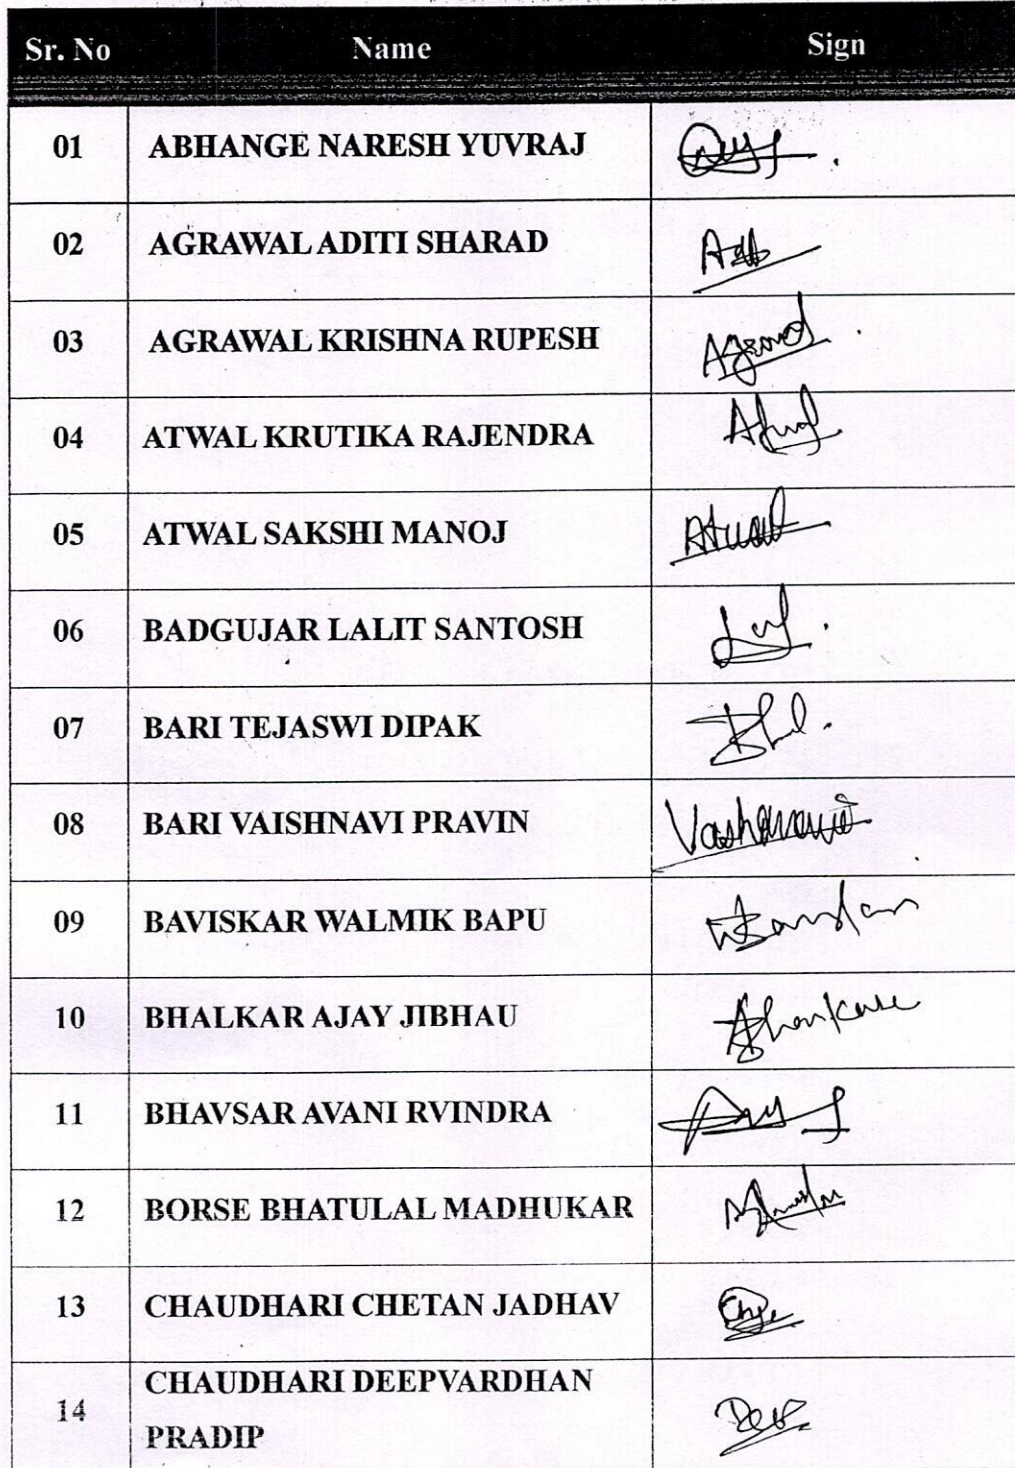 Sr. No Name Sign
01 ABHANGE NARESH YUVRAJ
02 AGRAWAL ADITI SHARAD
03 AGRAWAL KRISHNA RUPESH Agrawal
04 ATWAL KRUTIKA RAJENDRA Atwal
05 ATWAL SAKSHI MANOJ Atwal
06 BADGUJAR LALIT SANTOSH
07 BARI TEJASWI DIPAK
08 BARI VAISHNAVI PRAVIN
09 BAVISKAR WALMIK BAPU
10 BHALKAR AJAY JIBHAU
11 BHAVSAR AVANI RVINDRA
12 BORSE BHATULAL MADHUKAR
13 CHAUDHARI CHETAN JADHAV
CHAUDHARI DEEPVARDHAN
14
PRADIP